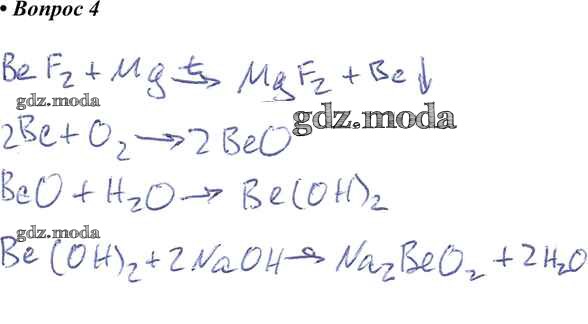 • Вопрос 4
BeF₂ + Mg →ᵗ MgF₂ + Be↓
gdz.moda
gdz.moda
2Be + O₂ → 2BeO
BeO + H₂O → Be(OH)₂
gdz.moda
Be(OH)₂ + 2NaOH → Na₂BeO₂ + 2H₂O